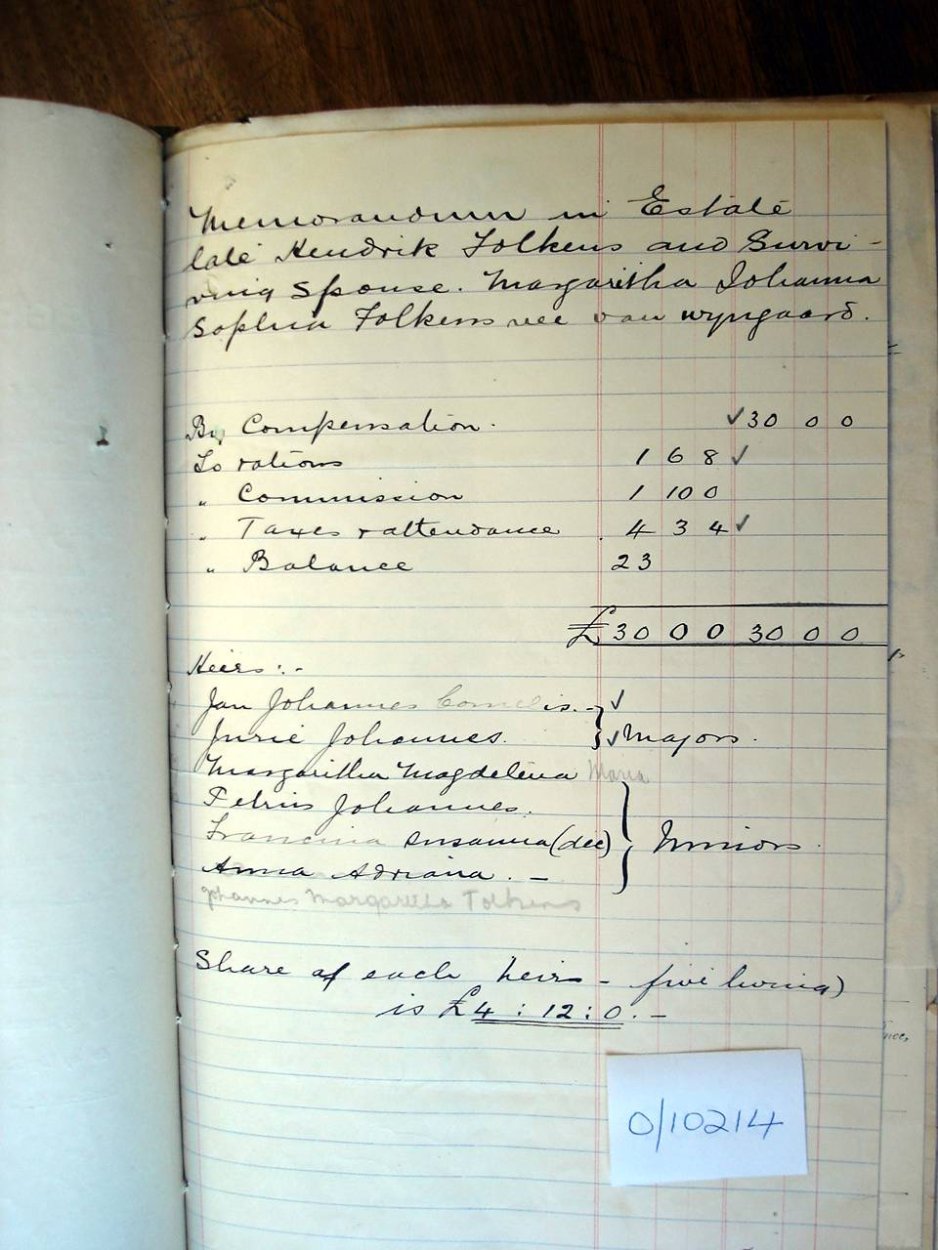 Memorandum in Estate
late Hendrik Folkens and Survi-
ving Spouse. Margaritha Johanna
Sophia Folkens nee van Wyngaard.
By Compensation. ✓ 30 0 0
To rations 1 6 8 ✓
" Commission 1 10 0
" Taxes & attendance 4 3 4 ✓
" Balance 23
£ 30 0 0 30 0 0
Heirs:-
Jan Johannes Cornelis. - ✓
Jurie Johannes. ✓ Majors.
Margaritha Magdelena Maria
Petrus Johannes.
Francina Susanna (dec) Minors.
Anna Adriana. -
Johannes Margaretta Folkens
Share of each heir - five living)
is £4 : 12 : 0. -
0/10214